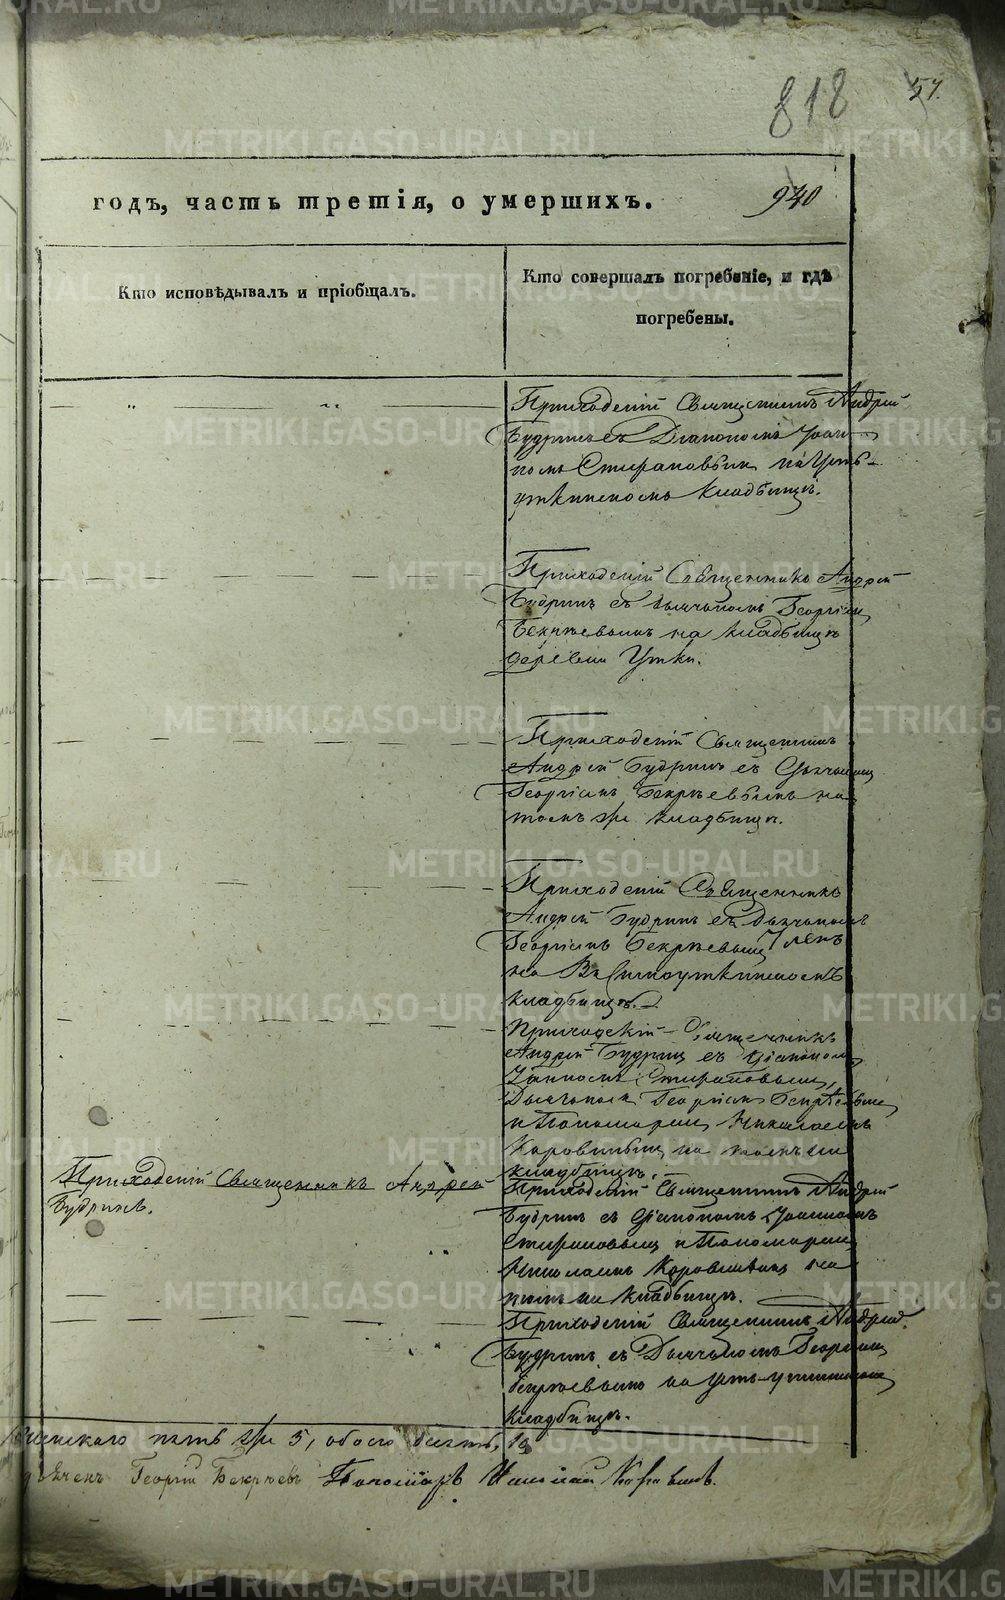 818
57.
годъ, часть третія, о умершихъ.
940
Кто исповѣдывалъ и пріобщалъ.
Кто совершалъ погребеніе, и гдѣ
погребены.
Приходскій Священникъ Андрей
Будринъ съ Діакономъ Іоан-
номъ Стирановымъ на Усть-
уткинскомъ кладбищѣ.
Приходскій Священникъ Андрей
Будринъ съ дьячькомъ Георгіемъ
Бекрѣевымъ на кладбищѣ
деревни Утки.
Приходскій Священникъ
Андрей Будринъ съ Дьячькомъ
Георгіемъ Бекрѣевымъ на
томъ же кладбищѣ.
Приходскій Священникъ
Андрей Будринъ съ Дьячькомъ
Георгіемъ Бекрѣевымъ
на кладбищѣ.
Приходскій Священникъ
Андрей Будринъ съ Діакономъ
Іоанномъ Стирановымъ,
Дьячькомъ Георгіемъ Бекрѣевымъ
и Пономаремъ Николаемъ
Коровинымъ на томъ же
кладбищѣ.
Приходскій Священникъ Андрей
Будринъ.
Приходскій Священникъ Андрей
Будринъ съ Діакономъ Іоанномъ
Стирановымъ и Пономаремъ
Николаемъ Коровинымъ на
томъ же кладбищѣ.
Приходскій Священникъ Андрей
Будринъ съ Дьячькомъ Георгіемъ
Бекрѣевымъ на Усть-уткинскомъ
кладбищѣ.
женскаго пять же 5, обоего десять, 10
Георгій Бекрѣевъ Пономарь Николай Коровинъ.
METRIKI.GASO-URAL.RU